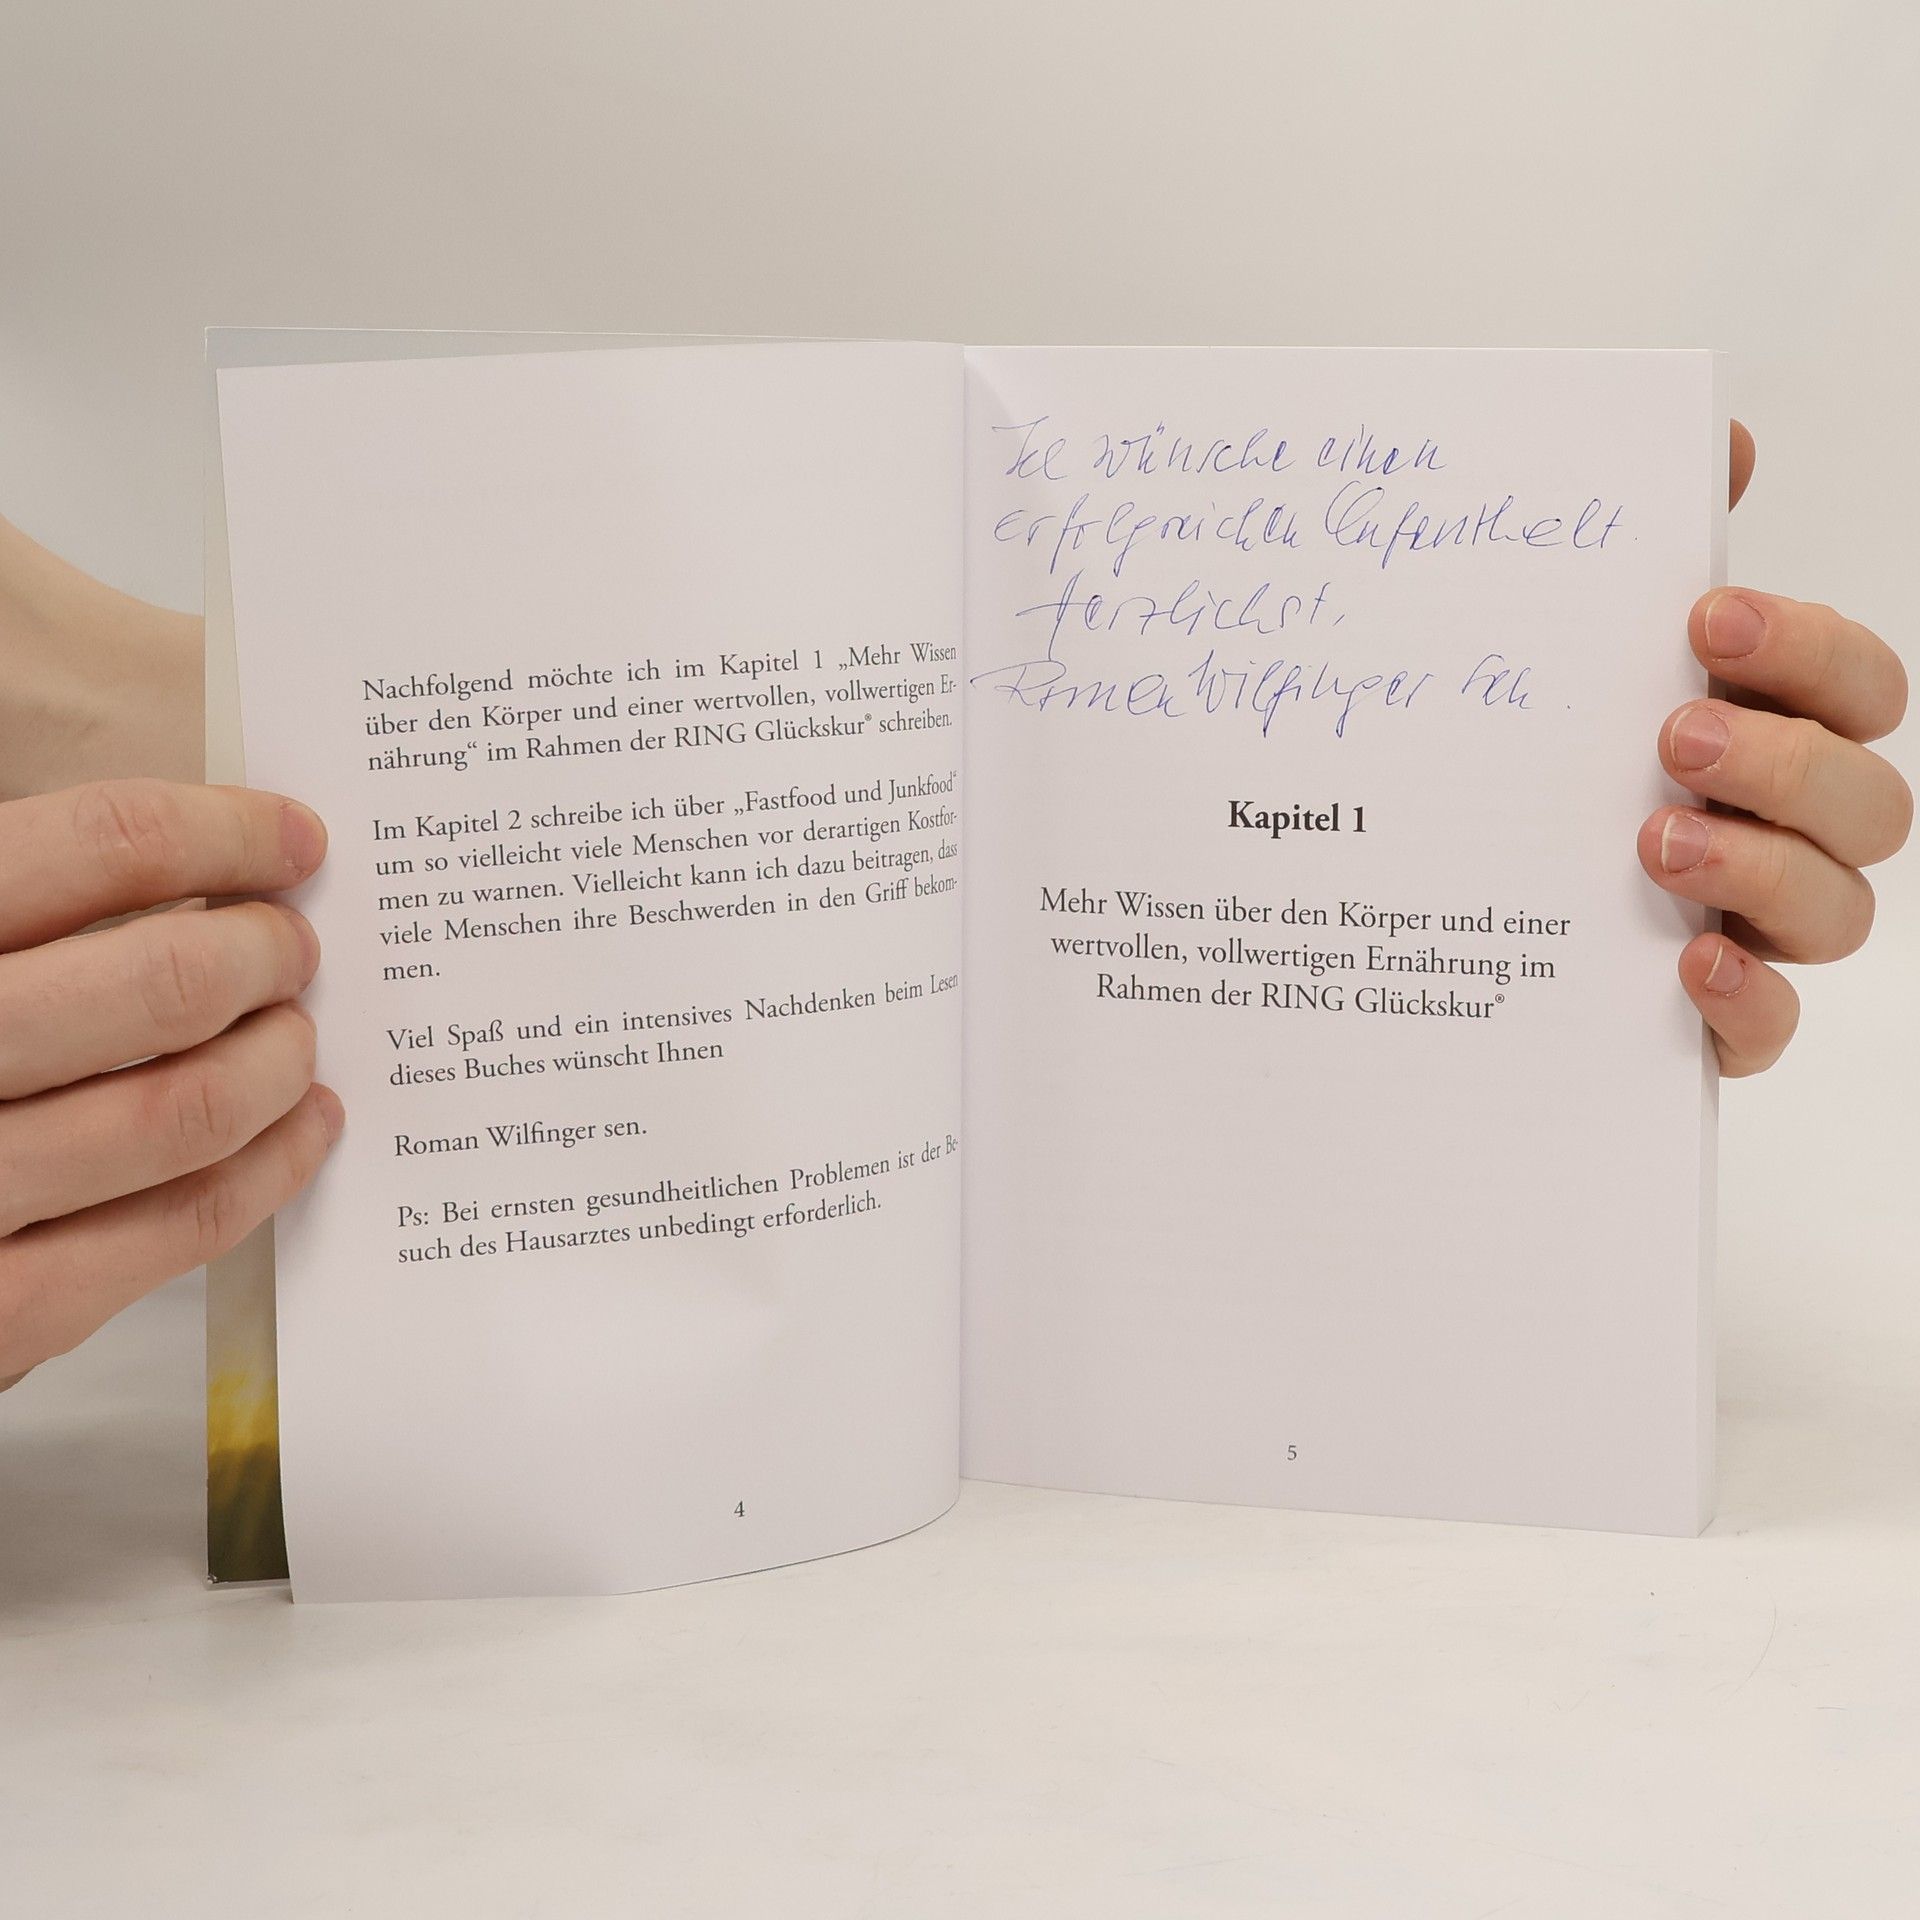 Nachfolgend möchte ich im Kapitel 1 „Mehr Wissen
über den Körper und einer wertvollen, vollwertigen Er-
nährung“ im Rahmen der RING Glückskur® schreiben.
Im Kapitel 2 schreibe ich über „Fastfood und Junkfood“
um so vielleicht viele Menschen vor derartigen Kostfor-
men zu warnen. Vielleicht kann ich dazu beitragen, dass
viele Menschen ihre Beschwerden in den Griff bekom-
men.
Viel Spaß und ein intensives Nachdenken beim Lesen
dieses Buches wünscht Ihnen
Roman Wilfinger sen.
Ps: Bei ernsten gesundheitlichen Problemen ist der Be-
such des Hausarztes unbedingt erforderlich.
4
Ich wünsche einen
erfolgreichen Aufenthalt.
Herzlichst,
Roman Wilfinger sen.
Kapitel 1
Mehr Wissen über den Körper und einer
wertvollen, vollwertigen Ernährung im
Rahmen der RING Glückskur®
5